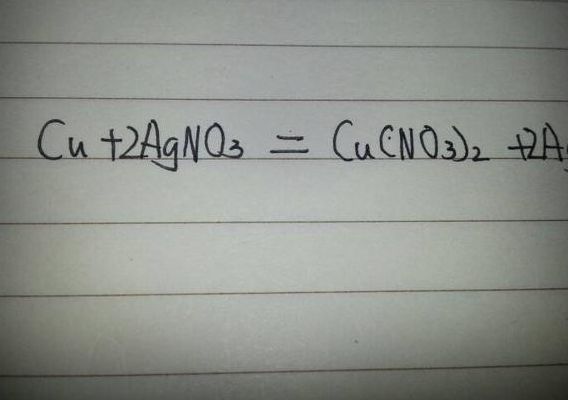 Cu +2AgNO3 = Cu(NO3)2 +2Ag